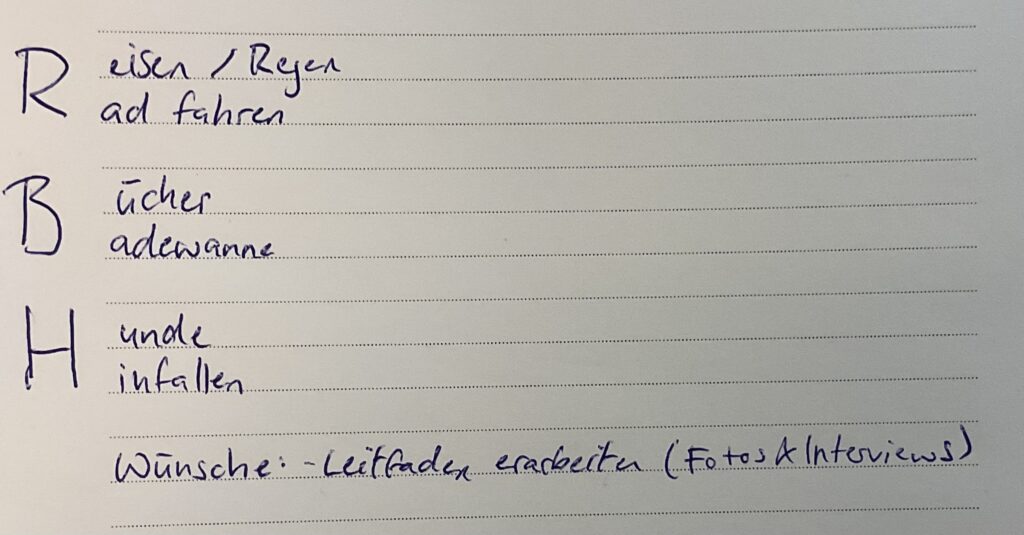 Reisen / Regen
Rad fahren
Bücher
Badewanne
Hunde
Hinfallen
Wünsche: - Leitfaden erarbeiten (Fotos & Interviews)